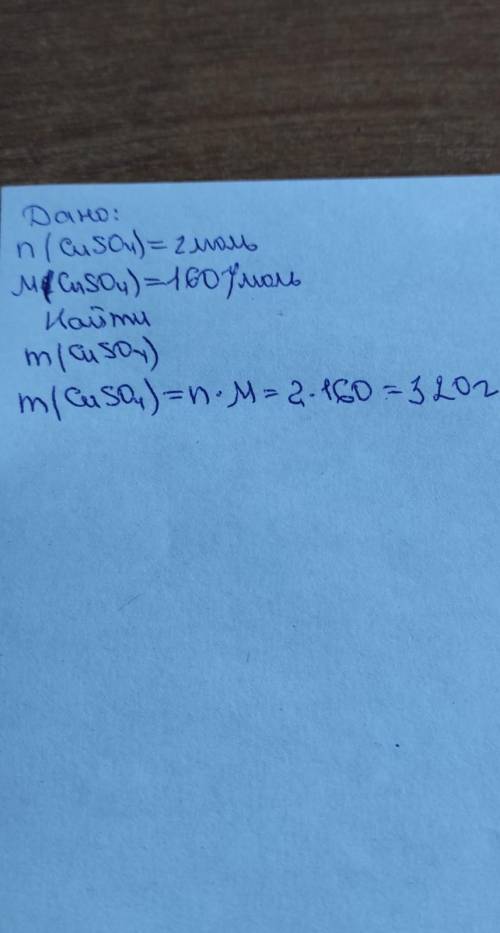 Дано:
n(CuSO₄)=2моль
M(CuSO₄)=160г/моль
Найти
m(CuSO₄)
m(CuSO₄)=n·M=2·160=320г